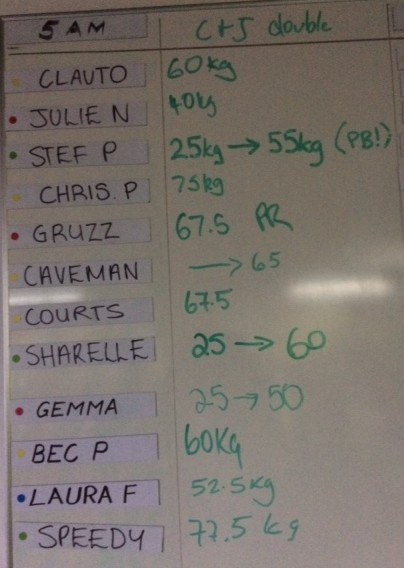 5 AM C+J double
CLAUTO 60kg
JULIE N 40kg
STEF P 25kg → 55kg (PB!)
CHRIS. P 75kg
GRUZZ 67.5 PR
CAVEMAN → 65
COURTS 67.5
SHARELLE 25 → 60
GEMMA 25 → 50
BEC P 60Kg
LAURA F 52.5kg
SPEEDY 77.5 kg